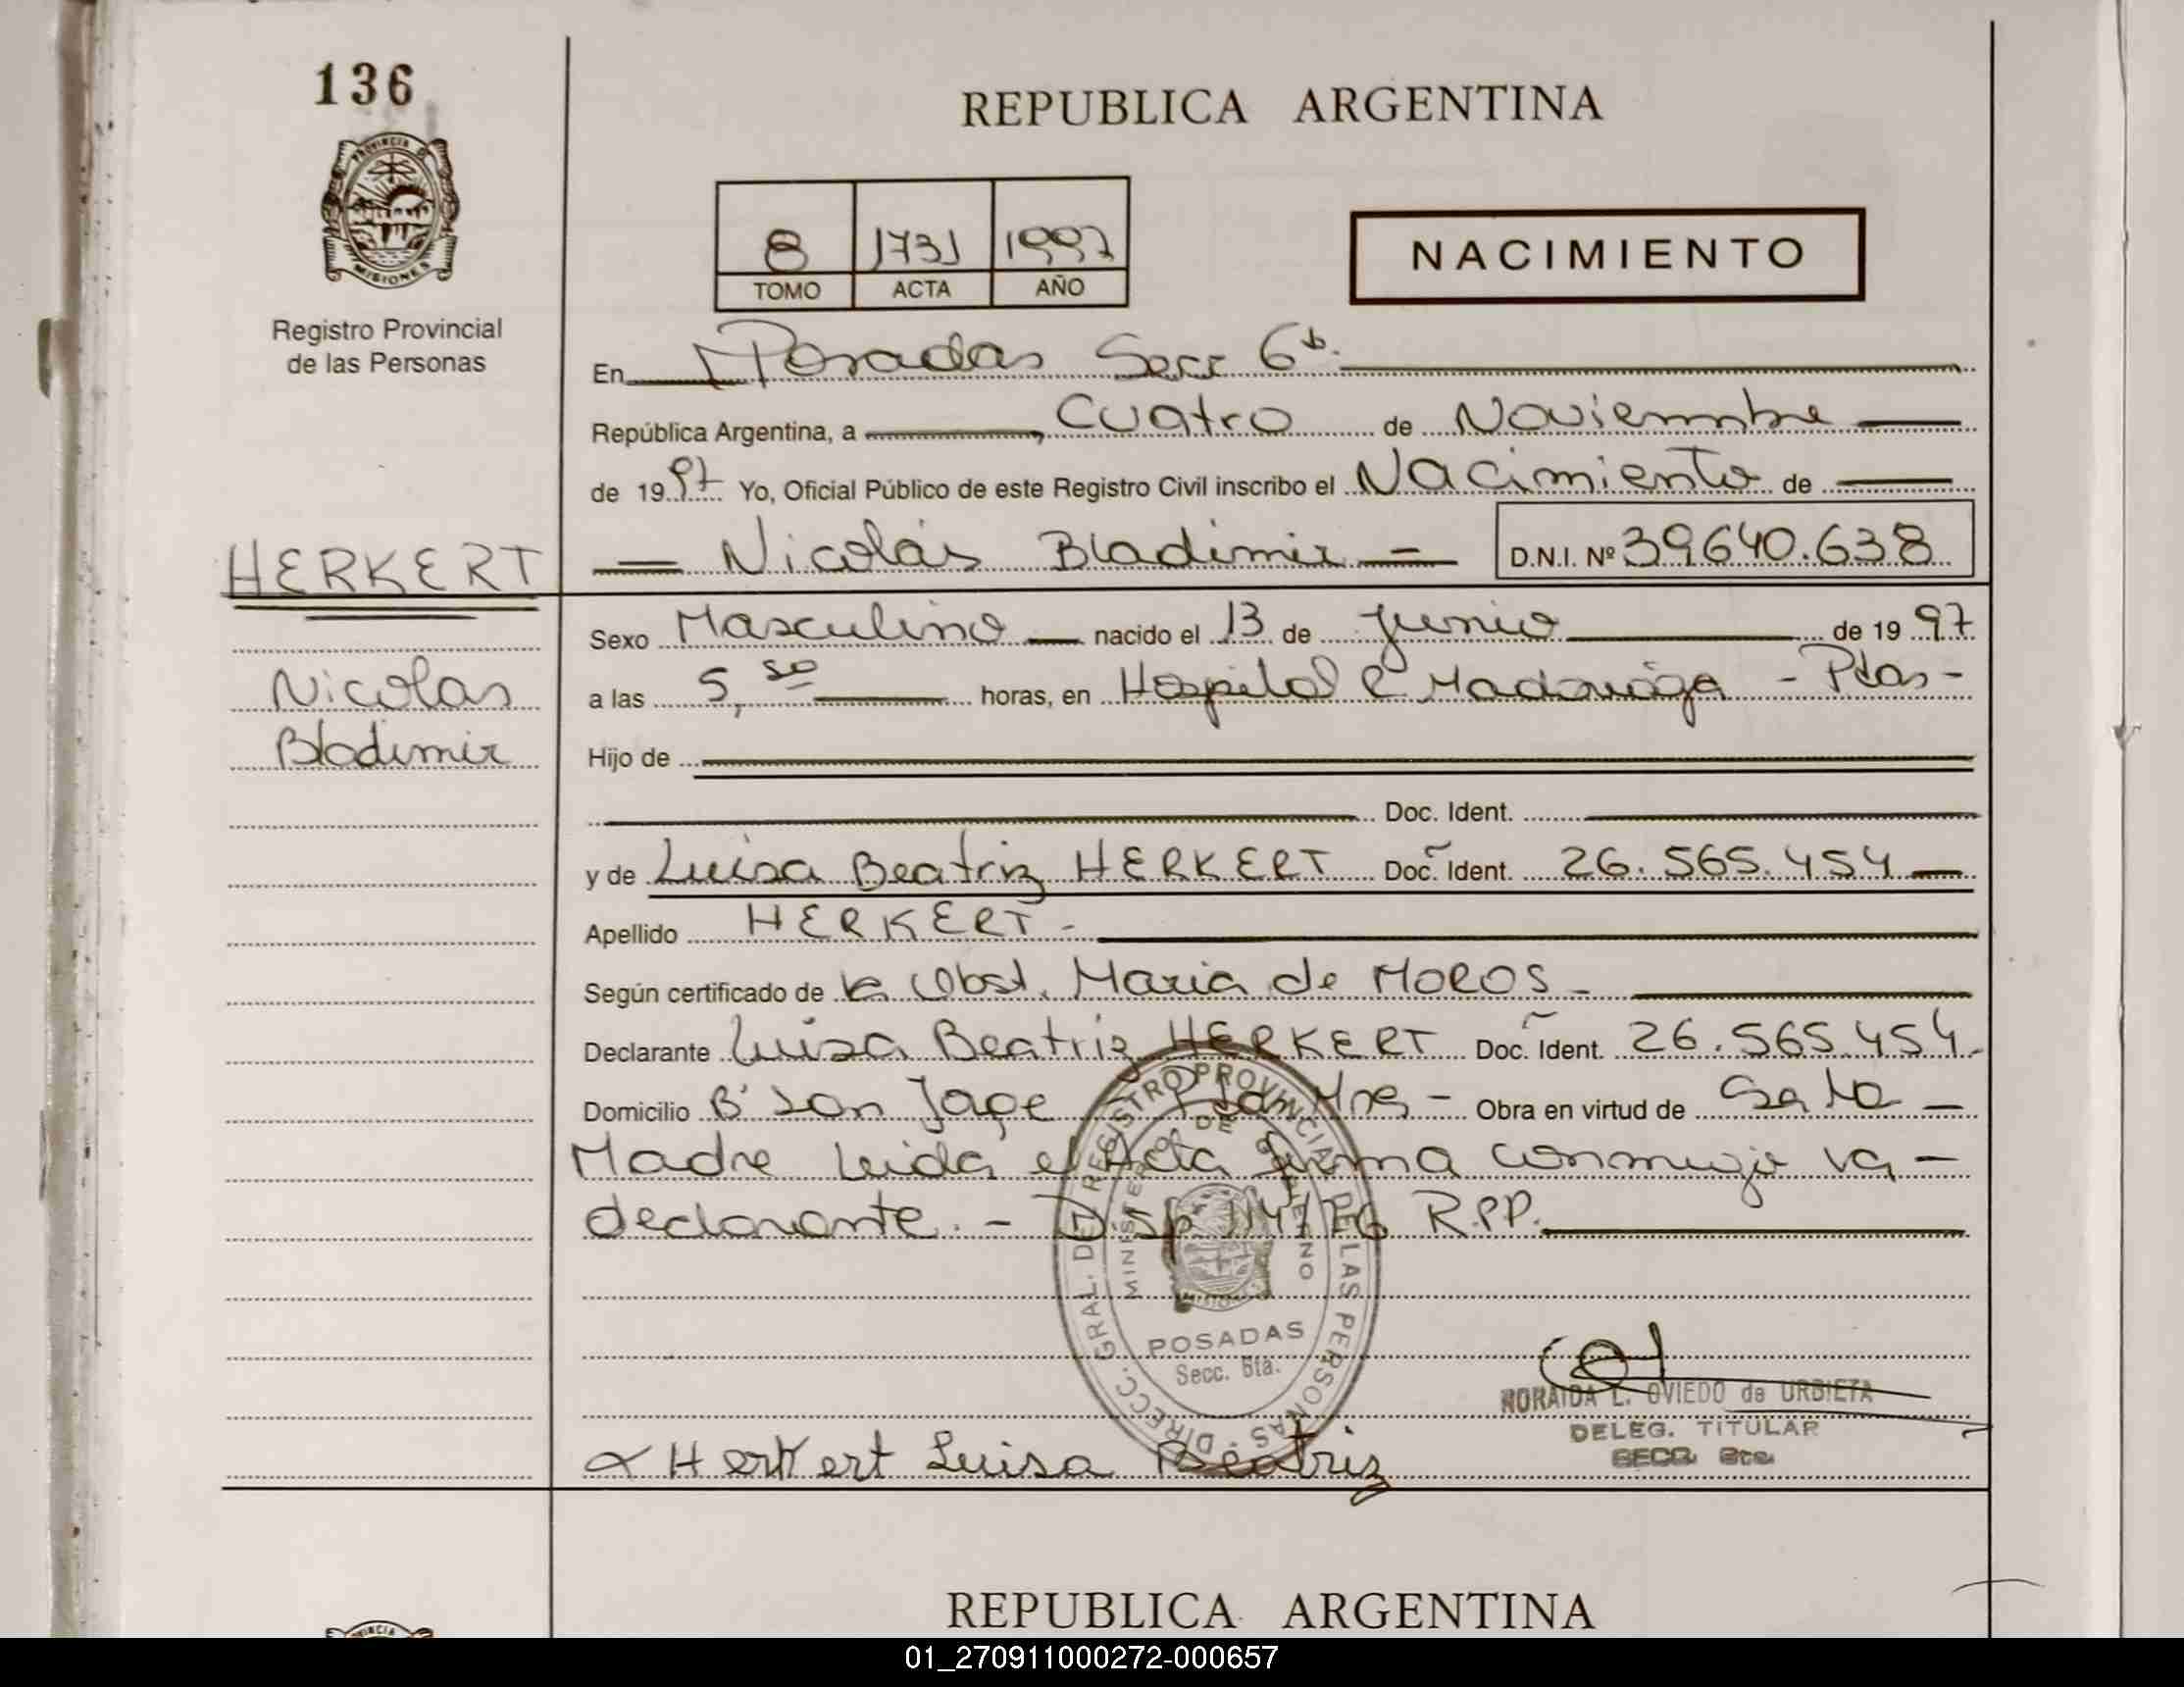 136
PROVINCIA D
MISIONES
Registro Provincial
de las Personas
REPUBLICA ARGENTINA
8 1731 1997
TOMO ACTA AÑO
NACIMIENTO
En Posadas Secc 6ª
República Argentina, a Cuatro de Noviembre
de 1997 Yo, Oficial Público de este Registro Civil inscribo el Nacimiento de
Nicolás Bladimir D.N.I. Nº 39.640.638
HERKERT
Nicolas
Bladimir
Sexo Masculino nacido el 13 de Junio de 1997
a las 5,50 horas, en Hospital R Madariaga - Pdas -
Hijo de
Doc. Ident.
y de Luisa Beatriz HERKERT Doc. Ident. 26.565.454
Apellido HERKERT -
Según certificado de la Obst. Maria de MOROS -
Declarante Luisa Beatriz HERKERT Doc. Ident. 26.565.454.
Domicilio B° San Jorge Pdas Mnes - Obra en virtud de
Madre Leida el Acta firma conmigo la -
declarante. - Disp 114/76 R.P.P.
DIRECC. GRAL. DEL REGISTRO PROVINCIAL DE LAS PERSONAS
MINISTERIO DE GOBIERNO
POSADAS
Secc. 6ta.
NORAIDA L. OVIEDO de URBIETA
DELEG. TITULAR
SECC. 6ta.
Herkert Luisa Beatriz
REPUBLICA ARGENTINA
01_270911000272-000657